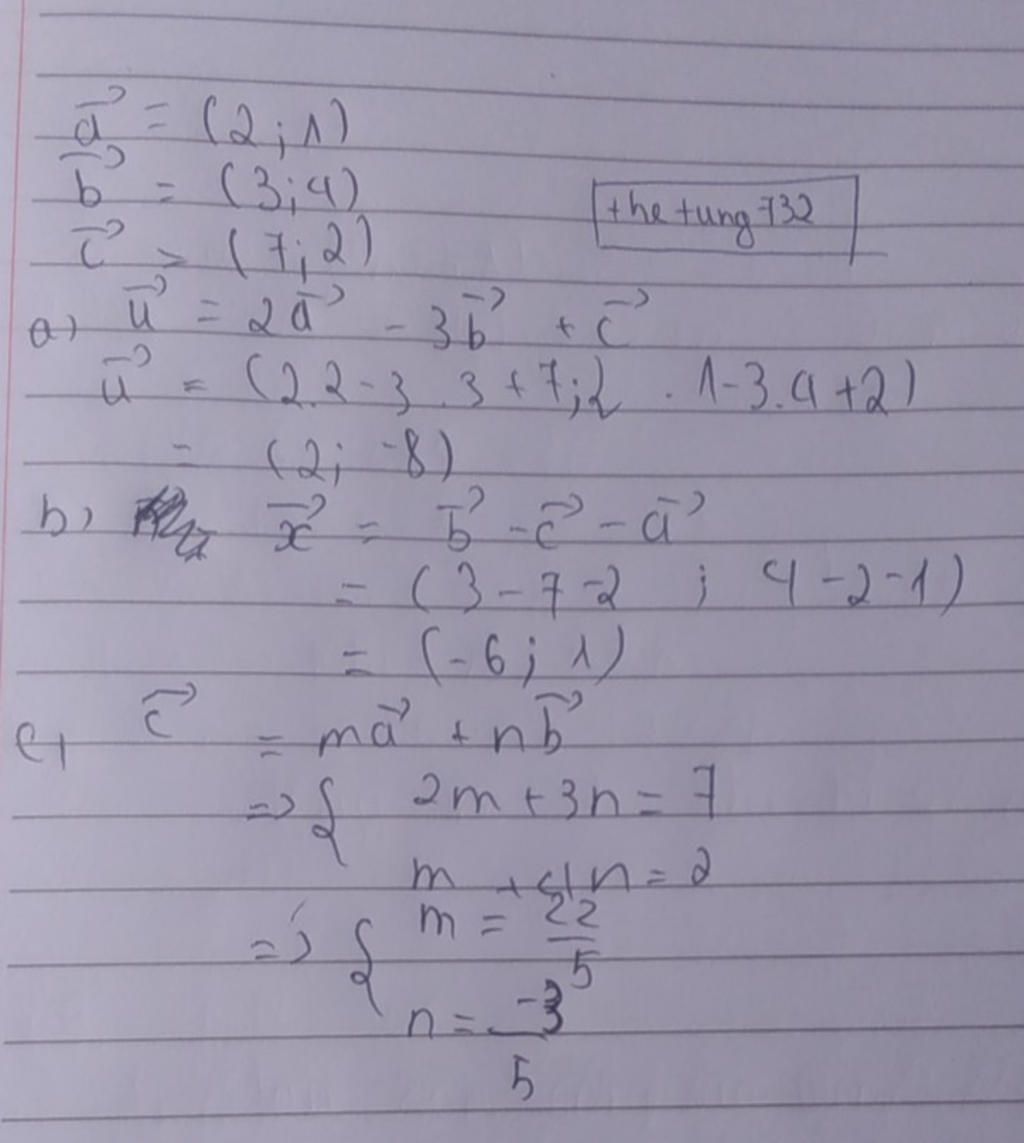 a⃗ = (2; 1)
b⃗ = (3; 4)
c⃗ = (7; 2)
thetung732
a) u⃗ = 2a⃗ - 3b⃗ + c⃗
u⃗ = (2.2 - 3.3 + 7; 2 . 1 - 3.4 + 2)
= (2; -8)
b) x⃗ = b⃗ - c⃗ - a⃗
= (3 - 7 - 2 ; 4 - 2 - 1)
= (-6; 1)
c) c⃗ = ma⃗ + nb⃗
=> { 2m + 3n = 7
m + 4n = 2
=> { m = 22/5
n = -3/5